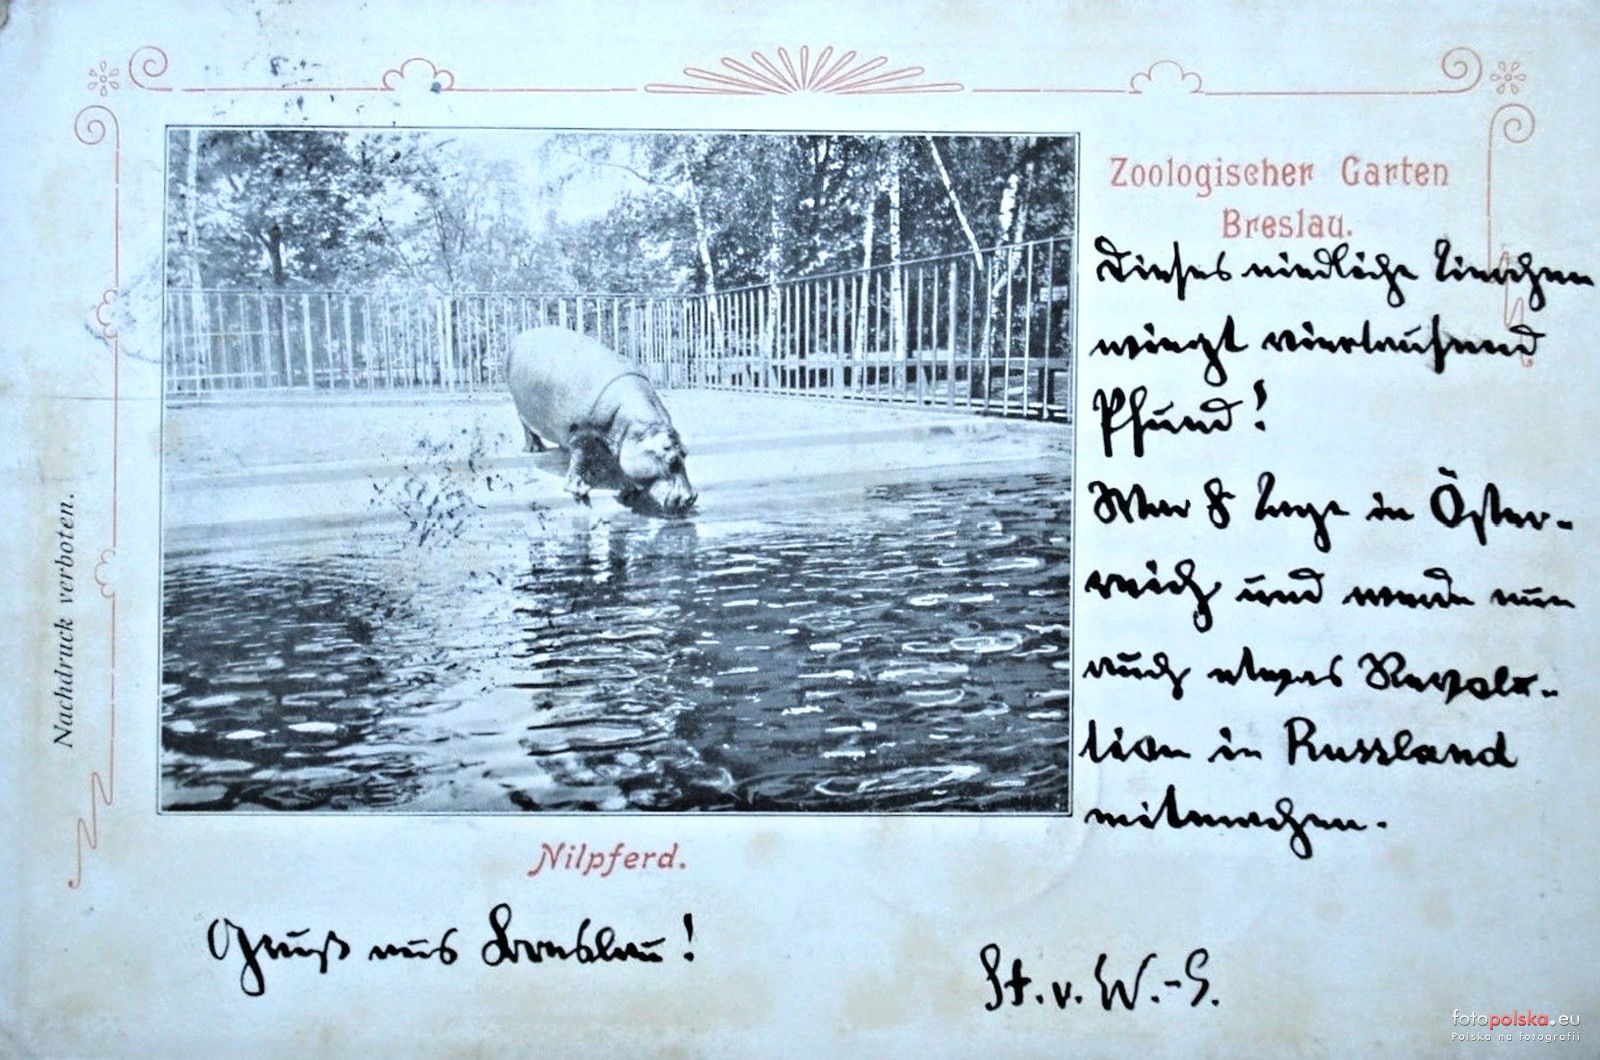 Zoologischer Garten
Breslau.
Dieses niedliche Tierchen
wiegt viertausend
Pfund!
War 8 Tage in Öster-
reich und werde nun
auch etwas Revolu-
tion in Russland
mitmachen.
Nachdruck verboten.
Nilpferd.
Gruß aus Breslau!
St. v. W.-S.
fotopolska.eu
Polska na fotografii